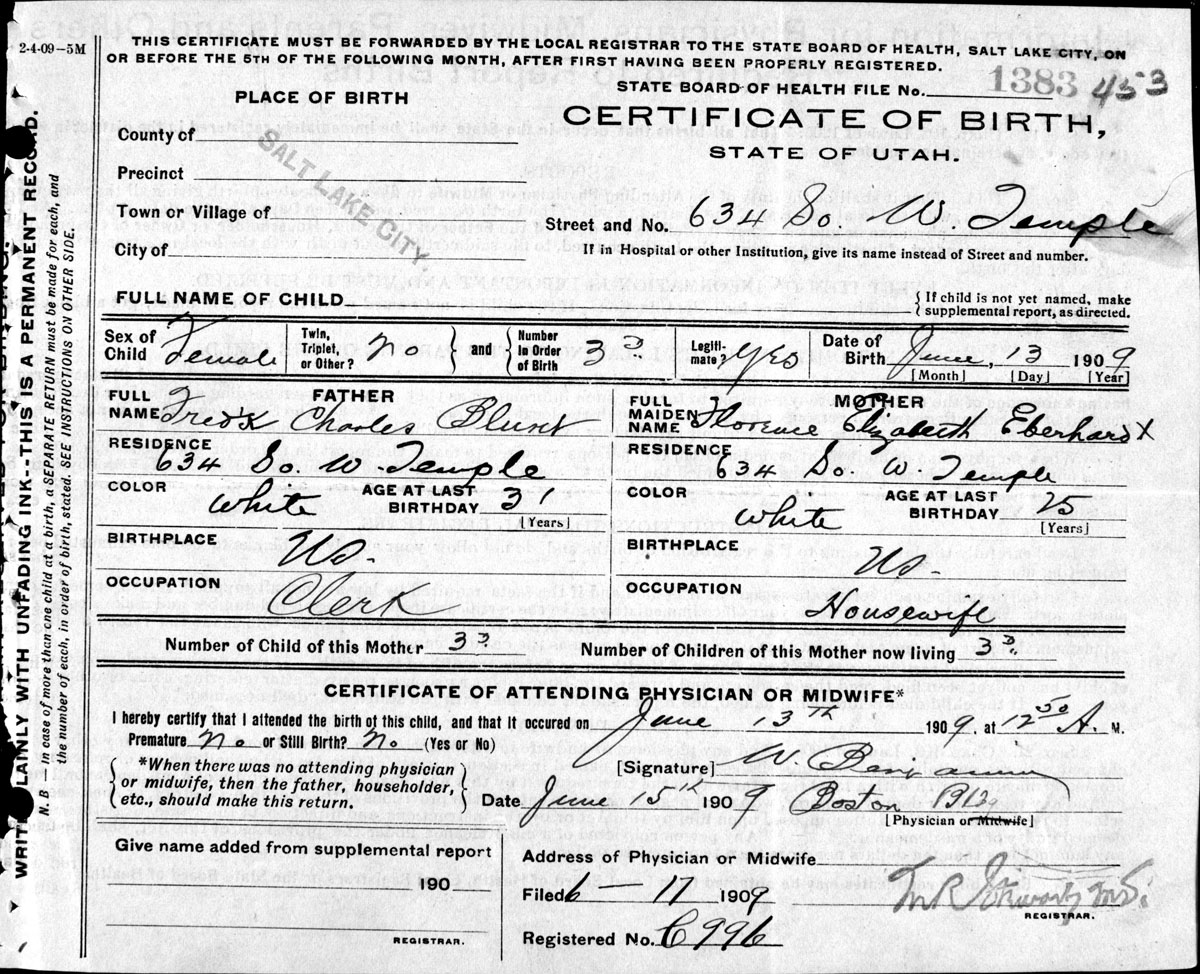 2-4-09-5M
THIS CERTIFICATE MUST BE FORWARDED BY THE LOCAL REGISTRAR TO THE STATE BOARD OF HEALTH, SALT LAKE CITY, ON
OR BEFORE THE 5TH OF THE FOLLOWING MONTH, AFTER FIRST HAVING BEEN PROPERLY REGISTERED.
STATE BOARD OF HEALTH FILE No. 1383 453
PLACE OF BIRTH
CERTIFICATE OF BIRTH,
STATE OF UTAH.
County of
Precinct
Town or Village of
City of
SALT LAKE CITY
Street and No. 634 So W. Temple
If in Hospital or other Institution, give its name instead of Street and number.
FULL NAME OF CHILD
{ If child is not yet named, make
supplemental report, as directed.
Sex of Child Female
Twin, Triplet, or Other? No } and { Number in Order of Birth 3d
Legiti-mate? Yes
Date of Birth June, 13 1909
[Month] [Day] [Year]
FATHER
FULL NAME Fred Charles Blunt
RESIDENCE
634 So. W. Temple
COLOR White
AGE AT LAST BIRTHDAY 31
[Years]
BIRTHPLACE US.
OCCUPATION Clerk
MOTHER
FULL MAIDEN NAME Florence Elizabeth Eberhard X
RESIDENCE
634 So. W. Temple
COLOR White
AGE AT LAST BIRTHDAY 25
[Years]
BIRTHPLACE US
OCCUPATION
Housewife
Number of Child of this Mother 3d
Number of Children of this Mother now living 3d.
CERTIFICATE OF ATTENDING PHYSICIAN OR MIDWIFE*
I hereby certify that I attended the birth of this child, and that it occured on June 13th 1909, at 12 50 A. M.
Premature No or Still Birth? No (Yes or No)
{ *When there was no attending physician
or midwife, then the father, householder,
etc., should make this return. }
[Signature] W. Benjamin
Date June 15th 1909 Boston Bldg
[Physician or Midwife]
Give name added from supplemental report
190
REGISTRAR.
Address of Physician or Midwife
Filed 6 - 17 1909
REGISTRAR.
Registered No. C996
WRITE PLAINLY WITH UNFADING INK--THIS IS A PERMANENT RECORD.
N. B. In case of more than one child at a birth, a SEPARATE RETURN must be made for each, and
the number of each, in order of birth, stated. SEE INSTRUCTIONS ON OTHER SIDE.